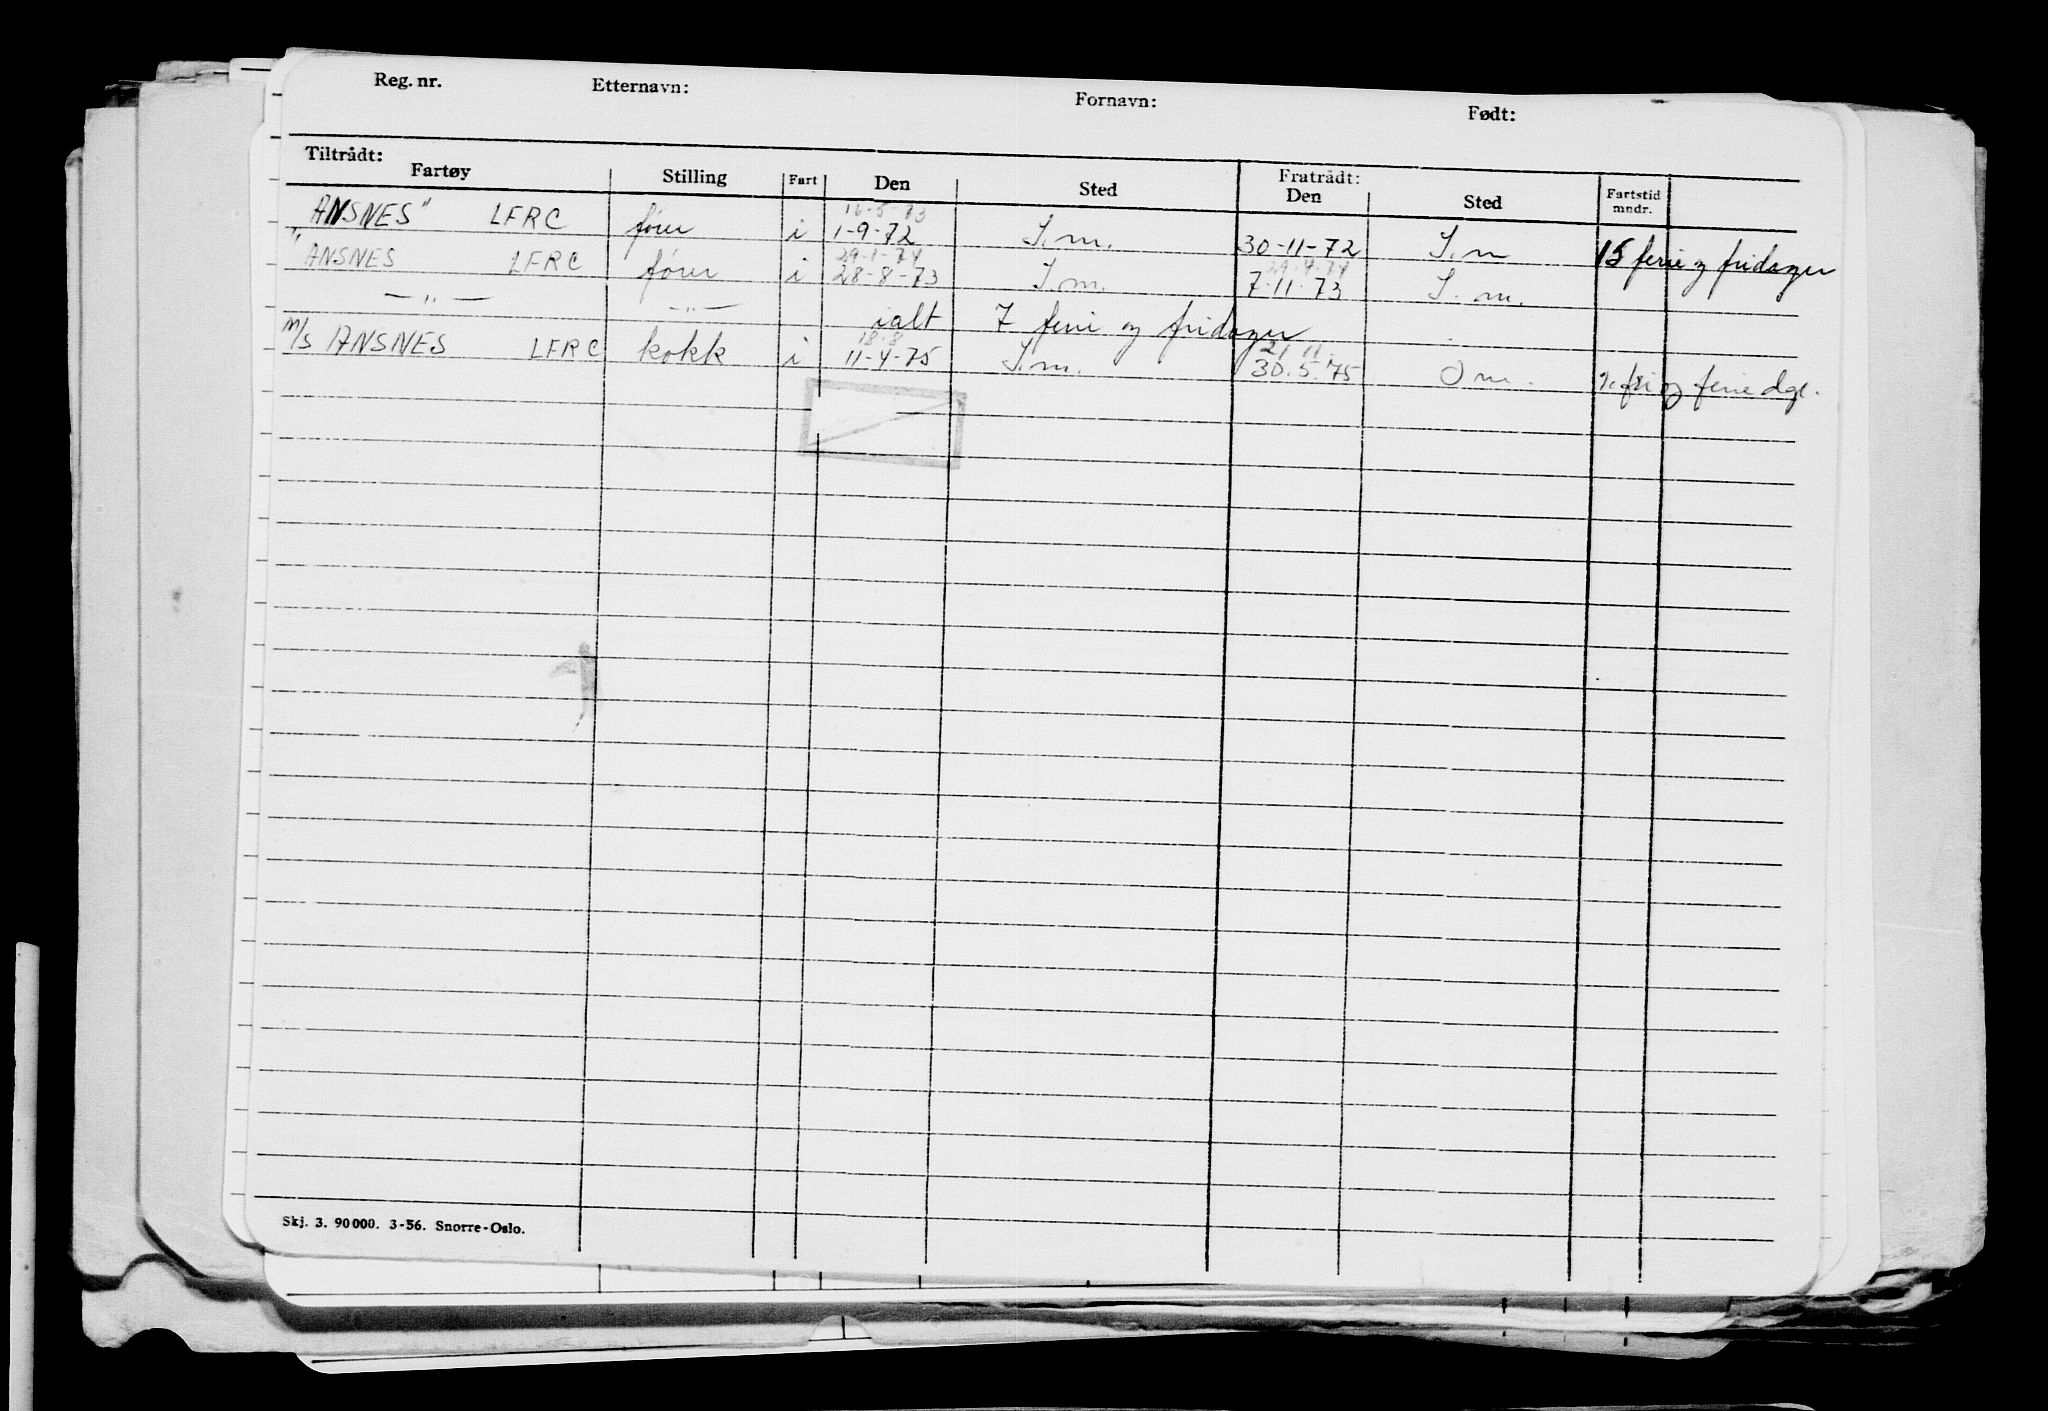 Reg. nr. Etternavn: Fornavn: Født:
Tiltrådt: Fratrådt:
Fartøy Stilling Fart Den Sted Den Sted Fartstid mndr.
16-5-73
"ANSNES" LFRC fører i 1-9-72 S.m. 30-11-72 S.m 15 ferie og fridager
29-1-74 29-4-74
"ANSNES LFRC fører i 28-8-73 S.m. 7-11-73 S.m.
—"— —"— ialt 7 ferie og fridager
18-8 21 11
M/S ANSNES LFRC kokk i 11-4-75 S.m. 30.5.75 S m. fri og ferie dgr.
Skj. 3. 90000. 3-56. Snorre-Oslo.